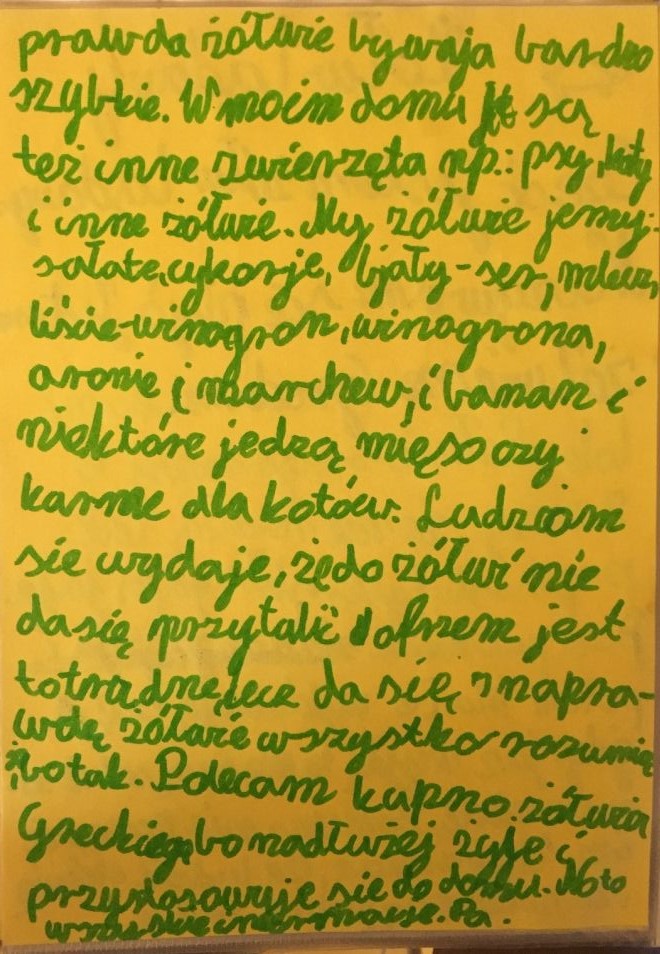 prawda żółwie bywaja bardzo
szybkie. W moim domu są
też inne zwierzęta np.: psy, koty
i inne żółwie. My żółwie jemy:
sałate, cykorje, bjały-ser, mlecz,
liście-winogron, winogrona,
aronie i marchew, i banan i
niektóre jedzą mięso czy
karme dla kotów. Ludziom
sie wydaje, że do żółwi nie
da się przytulić ofszem jest
to trudne, lecz da się, i napra-
wdę żółwie wszystko rozumią
bo tak. Polecam kupno żółwia
Greckiego bo nadłużej żyje i
przystosowuje sie do domu. No to
wszyskie informacje. Pa.